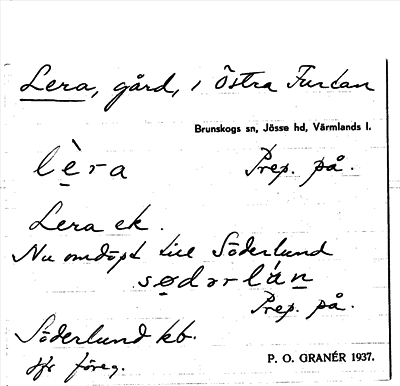 Lera, gård, i Östra Furtan
Brunskogs sn, Jösse hd, Värmlands l.
lèra Prep. på.
Lera ek.
Nu omdöpt till Söderlund
sødərlún
Prep. på.
Söderlund kb.
Jfr föreg.
P. O. GRANÉR 1937.